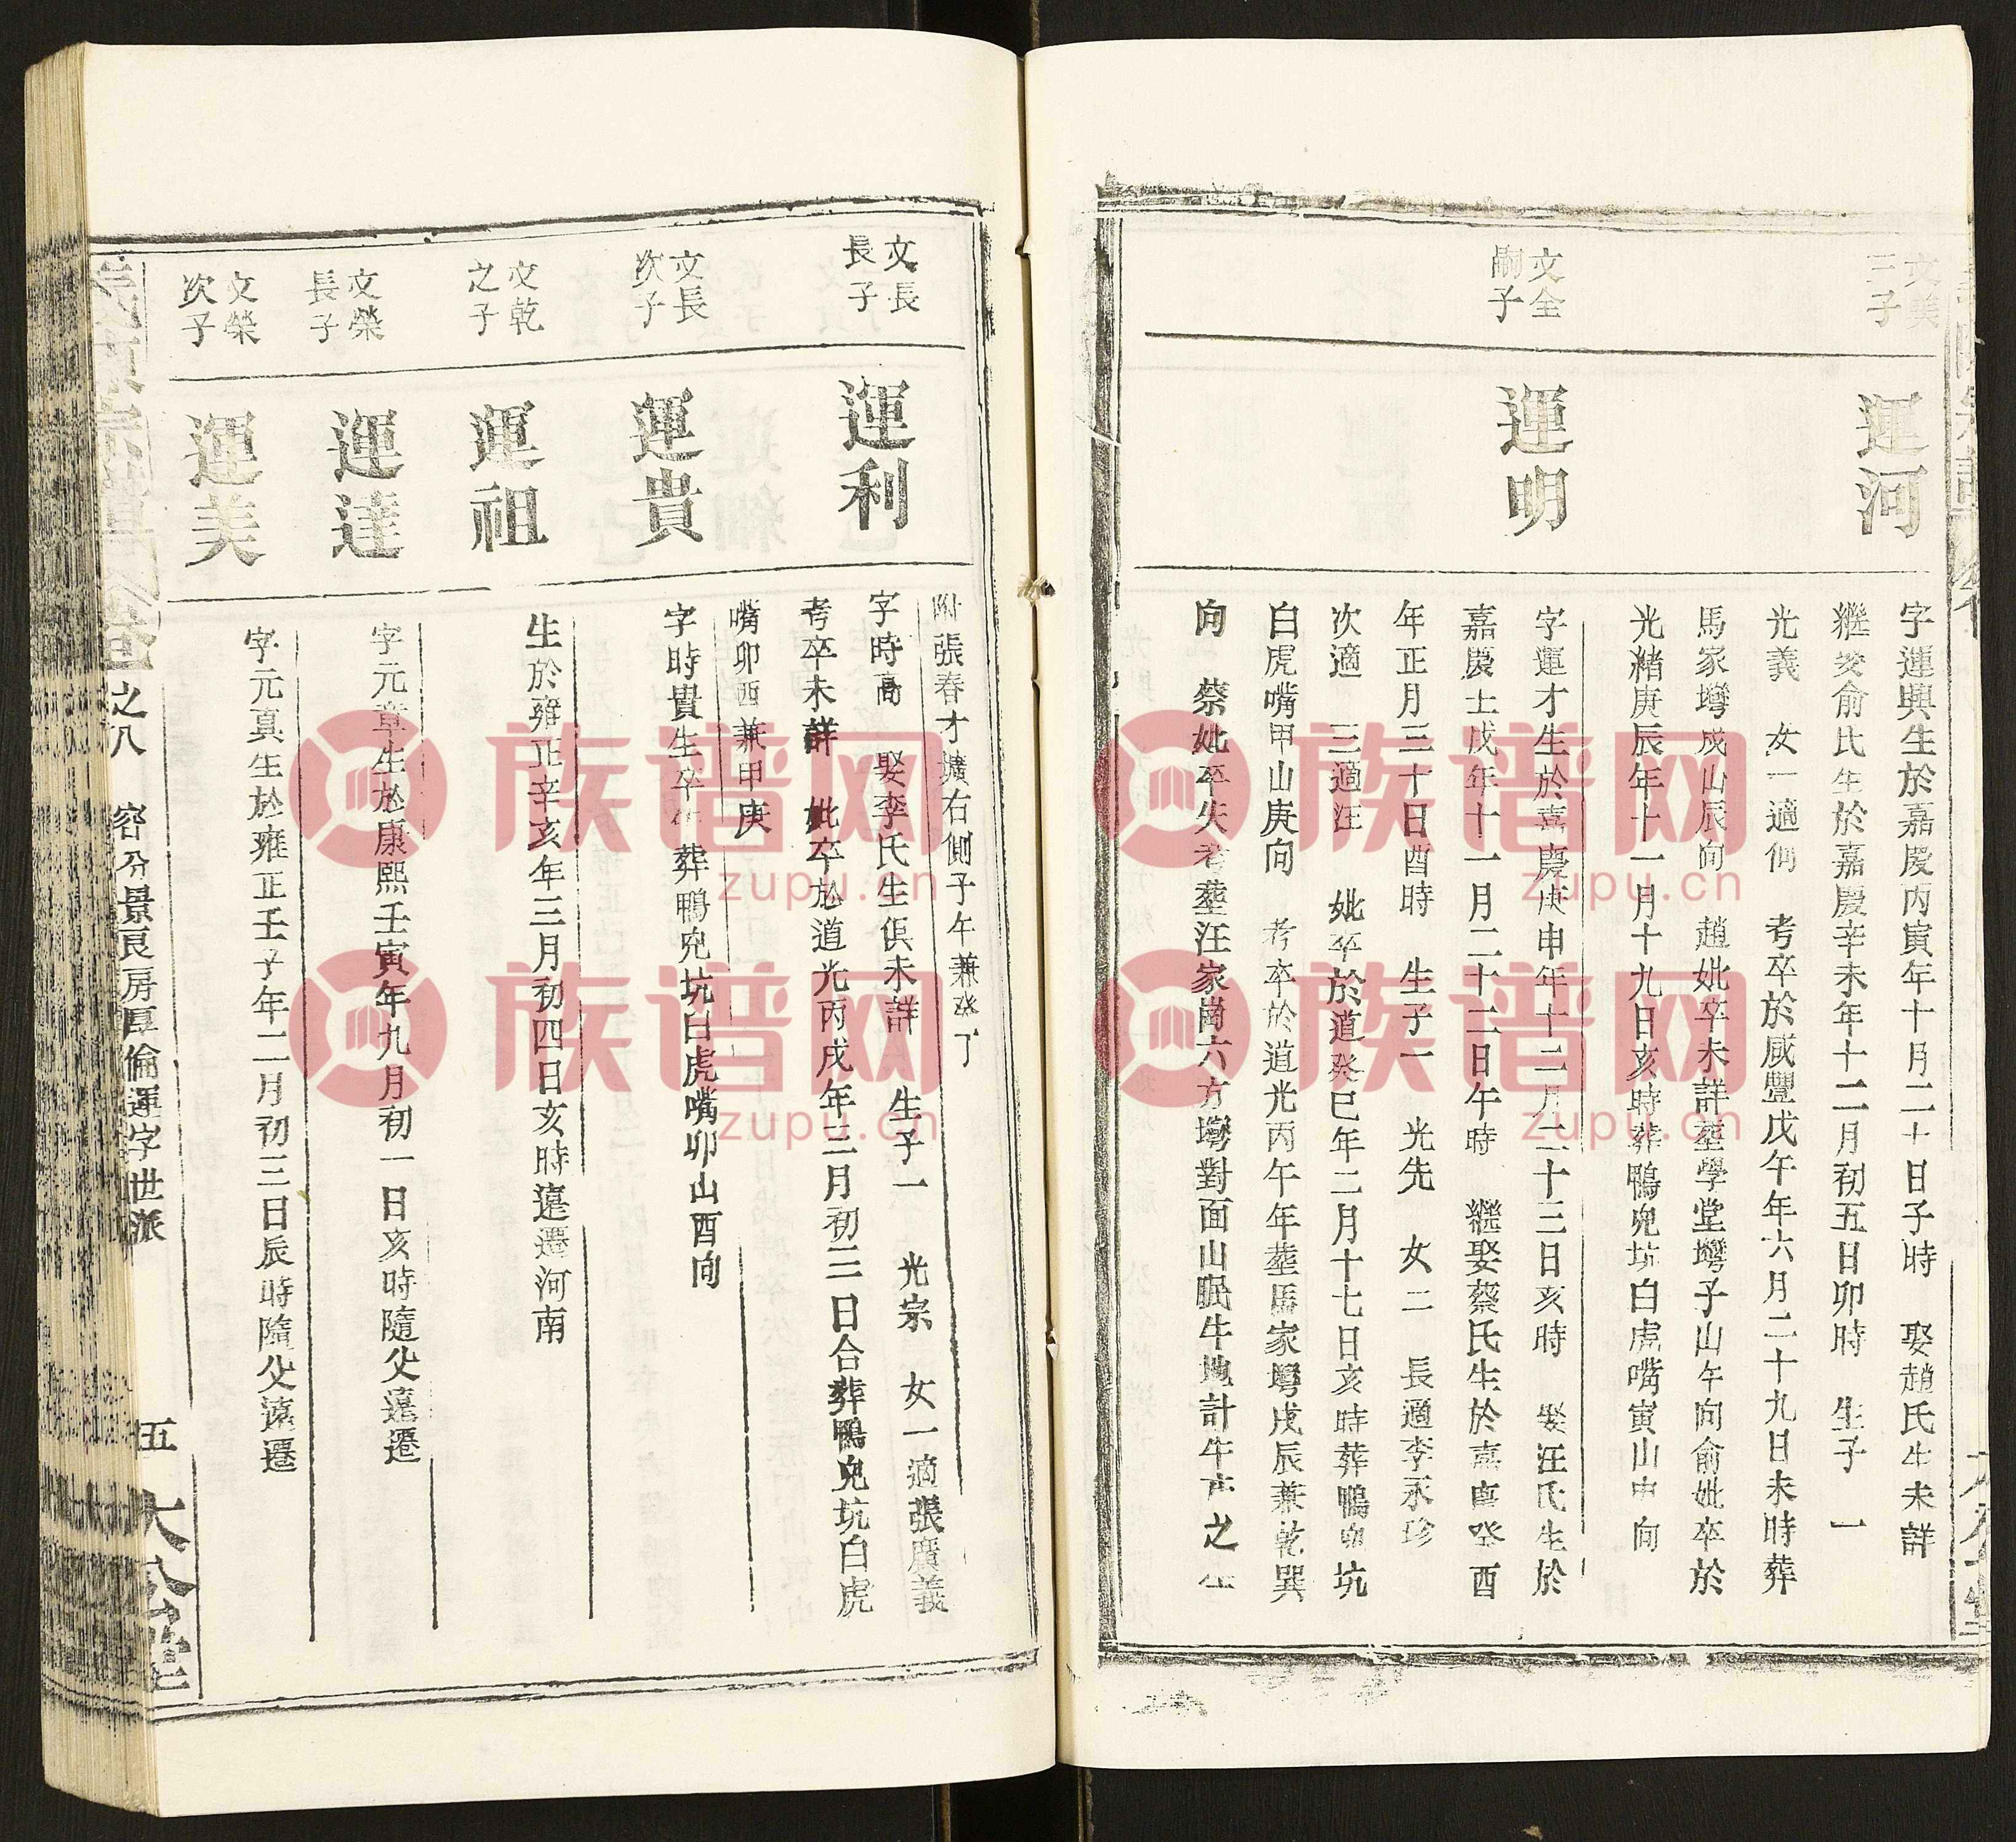 文美
三子
運河
字運興生於嘉慶丙寅年十月二十日子時 娶趙氏生未詳
繼娶俞氏生於嘉慶辛未年十二月初五日卯時 生子一
光義 女一適何 考卒於咸豐戊午年六月二十九日未時葬
馬家塆戍山辰向 趙妣卒未詳塟學堂塆子山午向俞妣卒於
光緒庚辰年十一月十九日亥時葬鴨兜坑白虎嘴寅山申向
文全
嗣子
運明
字運才生於嘉慶庚申年十二月二十三日亥時 娶汪氏生於
嘉慶士戍年十一月二十二日午時 繼娶蔡氏生於嘉慶癸酉
年正月三十日酉時 生子一 光先 女二 長適李永珍
次適 三適汪 妣卒於道癸巳年二月十七日亥時葬鴨兜坑
白虎嘴甲山庚向 考卒於道光丙午年塟馬家塆戍辰兼乾巽
向 蔡妣卒失考塟汪家崗六方塆對面山眠牛地計牛 之
附張春才壙右側子午兼癸丁
文長
長子
運利
字時高 娶李氏生俱未詳 生子一 光宗 女一適張廣義
考卒未詳 妣卒於道光丙戍年三月初三日合葬鴨兜坑白虎
嘴卯酉兼甲庚
文長
次子
運貴
字時貴生卒 葬鴨兜坑白虎嘴卯山酉向
文乾
之子
運祖
生於雍正辛亥年三月初四日亥時遠遷河南
文榮
長子
運達
字元章生於康熙壬寅年九月初一日亥時隨父遠遷
文榮
次子
運美
字元真生於雍正壬子年二月初三日辰時隨父遠遷
之八 容分景良房厚倫運字世派 五 大公堂
族谱网
zupu.cn
族谱网
zupu.cn
族谱网
zupu.cn
族谱网
zupu.cn